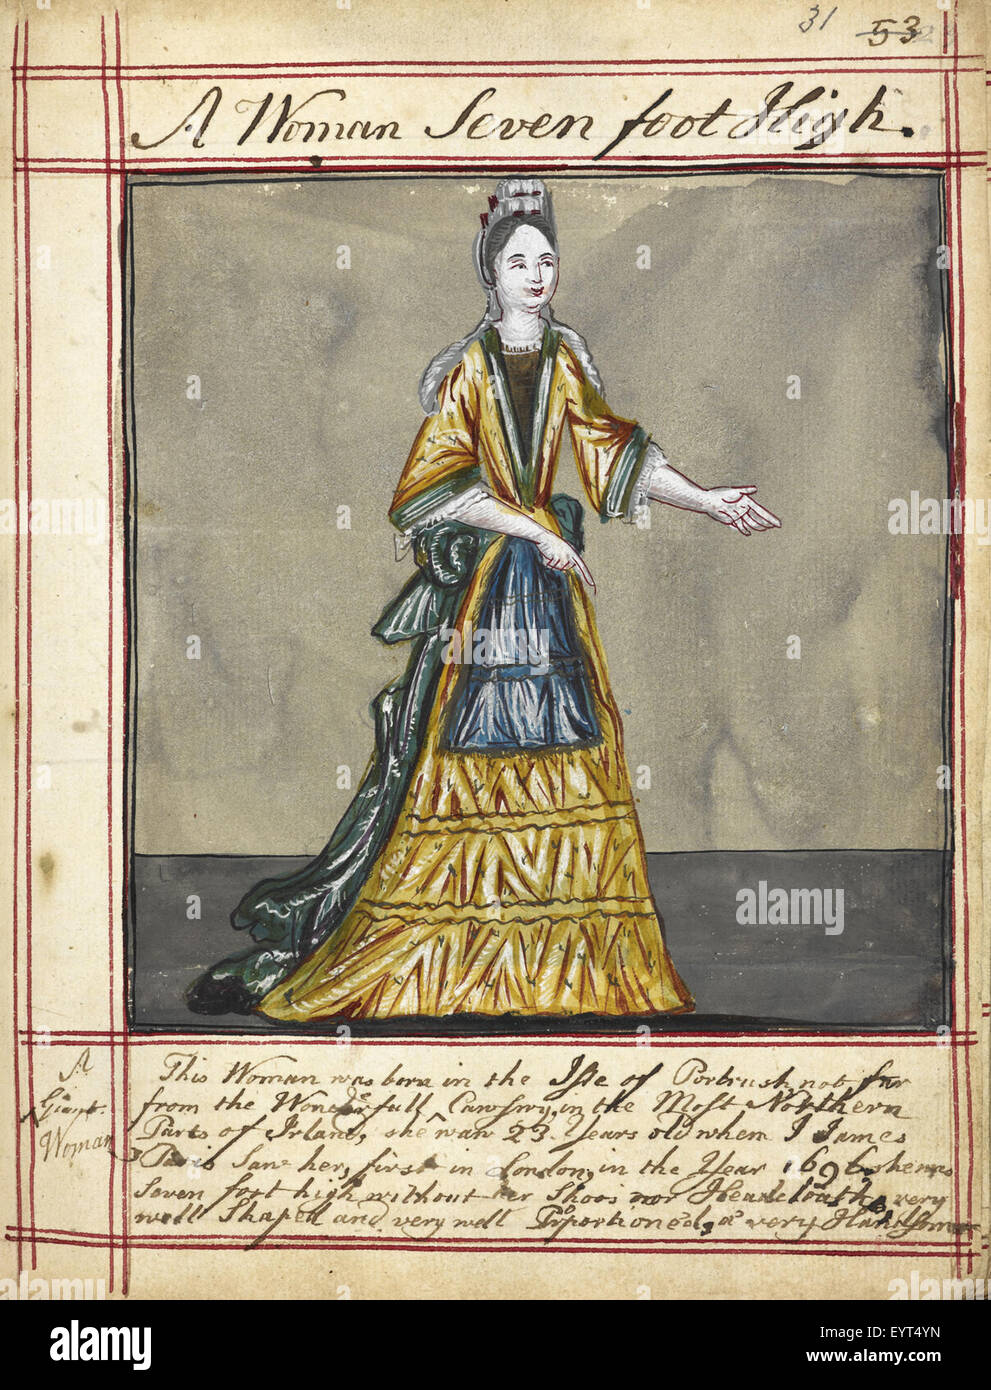 31 53
A Woman Seven foot High.
A
Giant
Woman
This Woman was born in the Isle of Portrush not far
from the Wonderfull Cawswy, in the Most Northern
Parts of Irland, she was 23 Years old when I James
Paris Saw her, first in London, in the Year 1696 she was
Seven foot high without her Shoos nor Headcloaths, very
well Shaped and very well Proportioned, a very Handsom
alamy
Image ID: EYT4YN
www.alamy.com